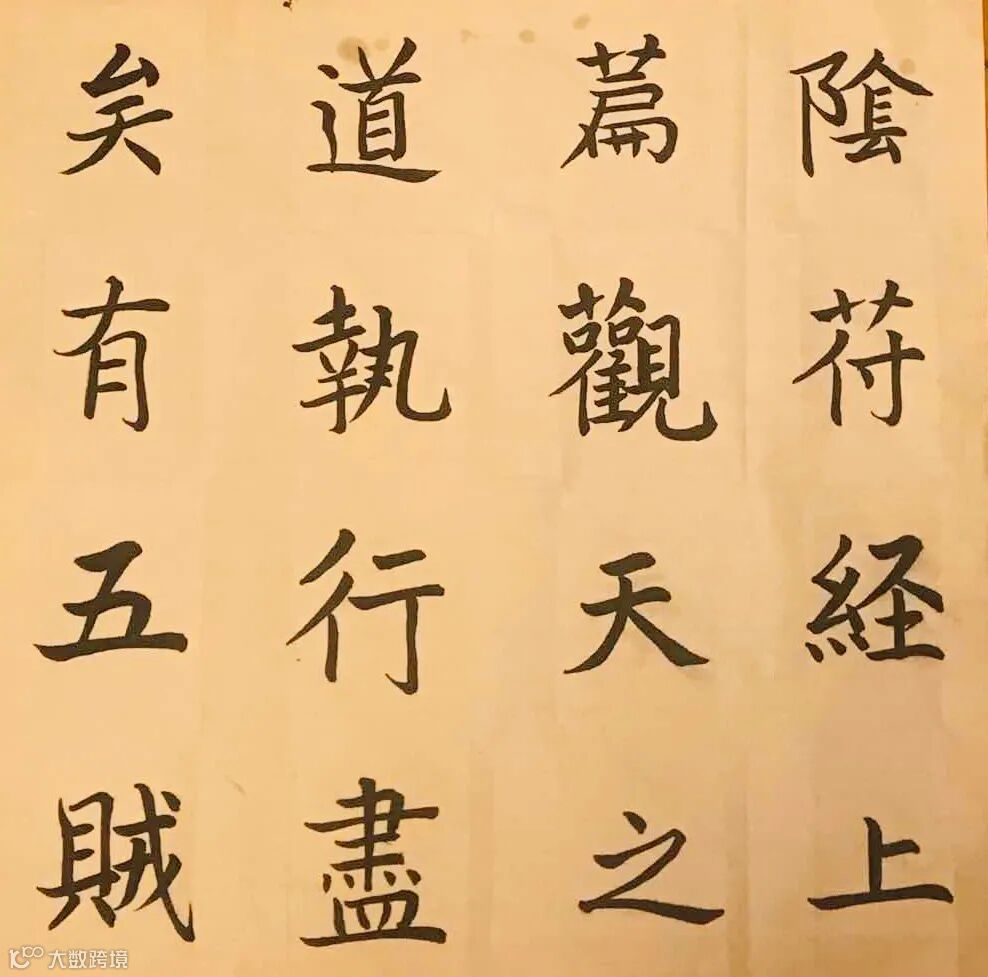 陰符経上
萹觀天之
道執行盡
矣有五賊
大数跨境